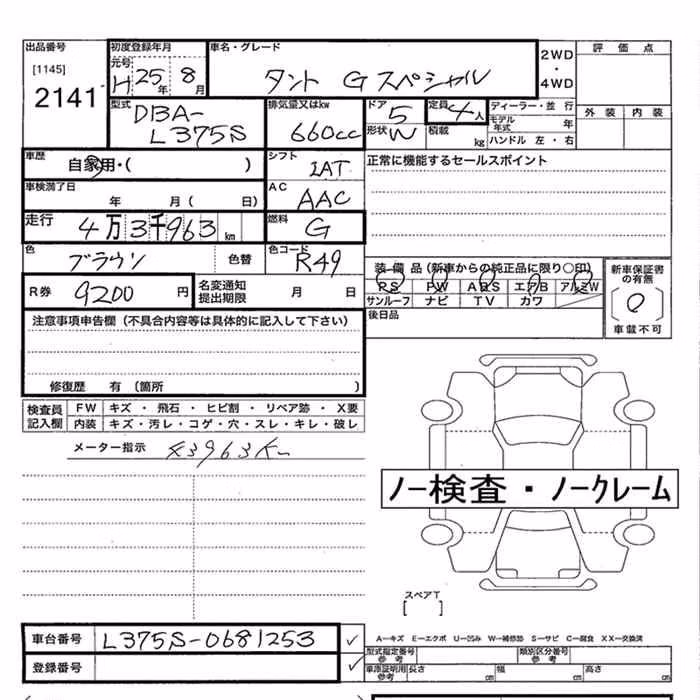 出品番号
[1145]
2141
初度登録年月
元号
H 25年 8月
車名・グレード
タント Gスペシャル
2WD・4WD
評価点
外装 内装
型式
DBA-L375S
排気量又はkw
660cc
ドア 5
形状 W
定員 4人
積載 kg
ディーラー・並行
モデル年式 年
ハンドル 左・右
車歴
自家用・( )
シフト
IAT
正常に機能するセールスポイント
車検満了日
年 月( 日)
AC
AAC
走行
4万3千963km
燃料
G
色
ブラウン
色替
色コード
R49
装備品(新車からの純正品に限り○印)
PS PW ABS エアB アルミW
サンルーフ ナビ TV カワ
新車保証書の有無
車載不可
R券
9200円
名変通知
提出期限
月 日
後日品
注意事項申告欄(不具合内容等は具体的に記入して下さい)
修復歴 有〔箇所 〕
検査員
記入欄
FW キズ・飛石・ヒビ割・リペア跡・X要
内装 キズ・汚レ・コゲ・穴・スレ・キレ・破レ
メーター指示 43963K
ノー検査・ノークレーム
スペアT
[ ]
車台番号 L375S-0681253 ✓
登録番号 ✓
A―キズ E―エクボ U―凹み W―補修跡 S―サビ C―腐食 XX―交換済
型式指定番号
参考
類別区分番号
参考
車庫証明用
参考
長さ cm 幅 cm 高さ cm